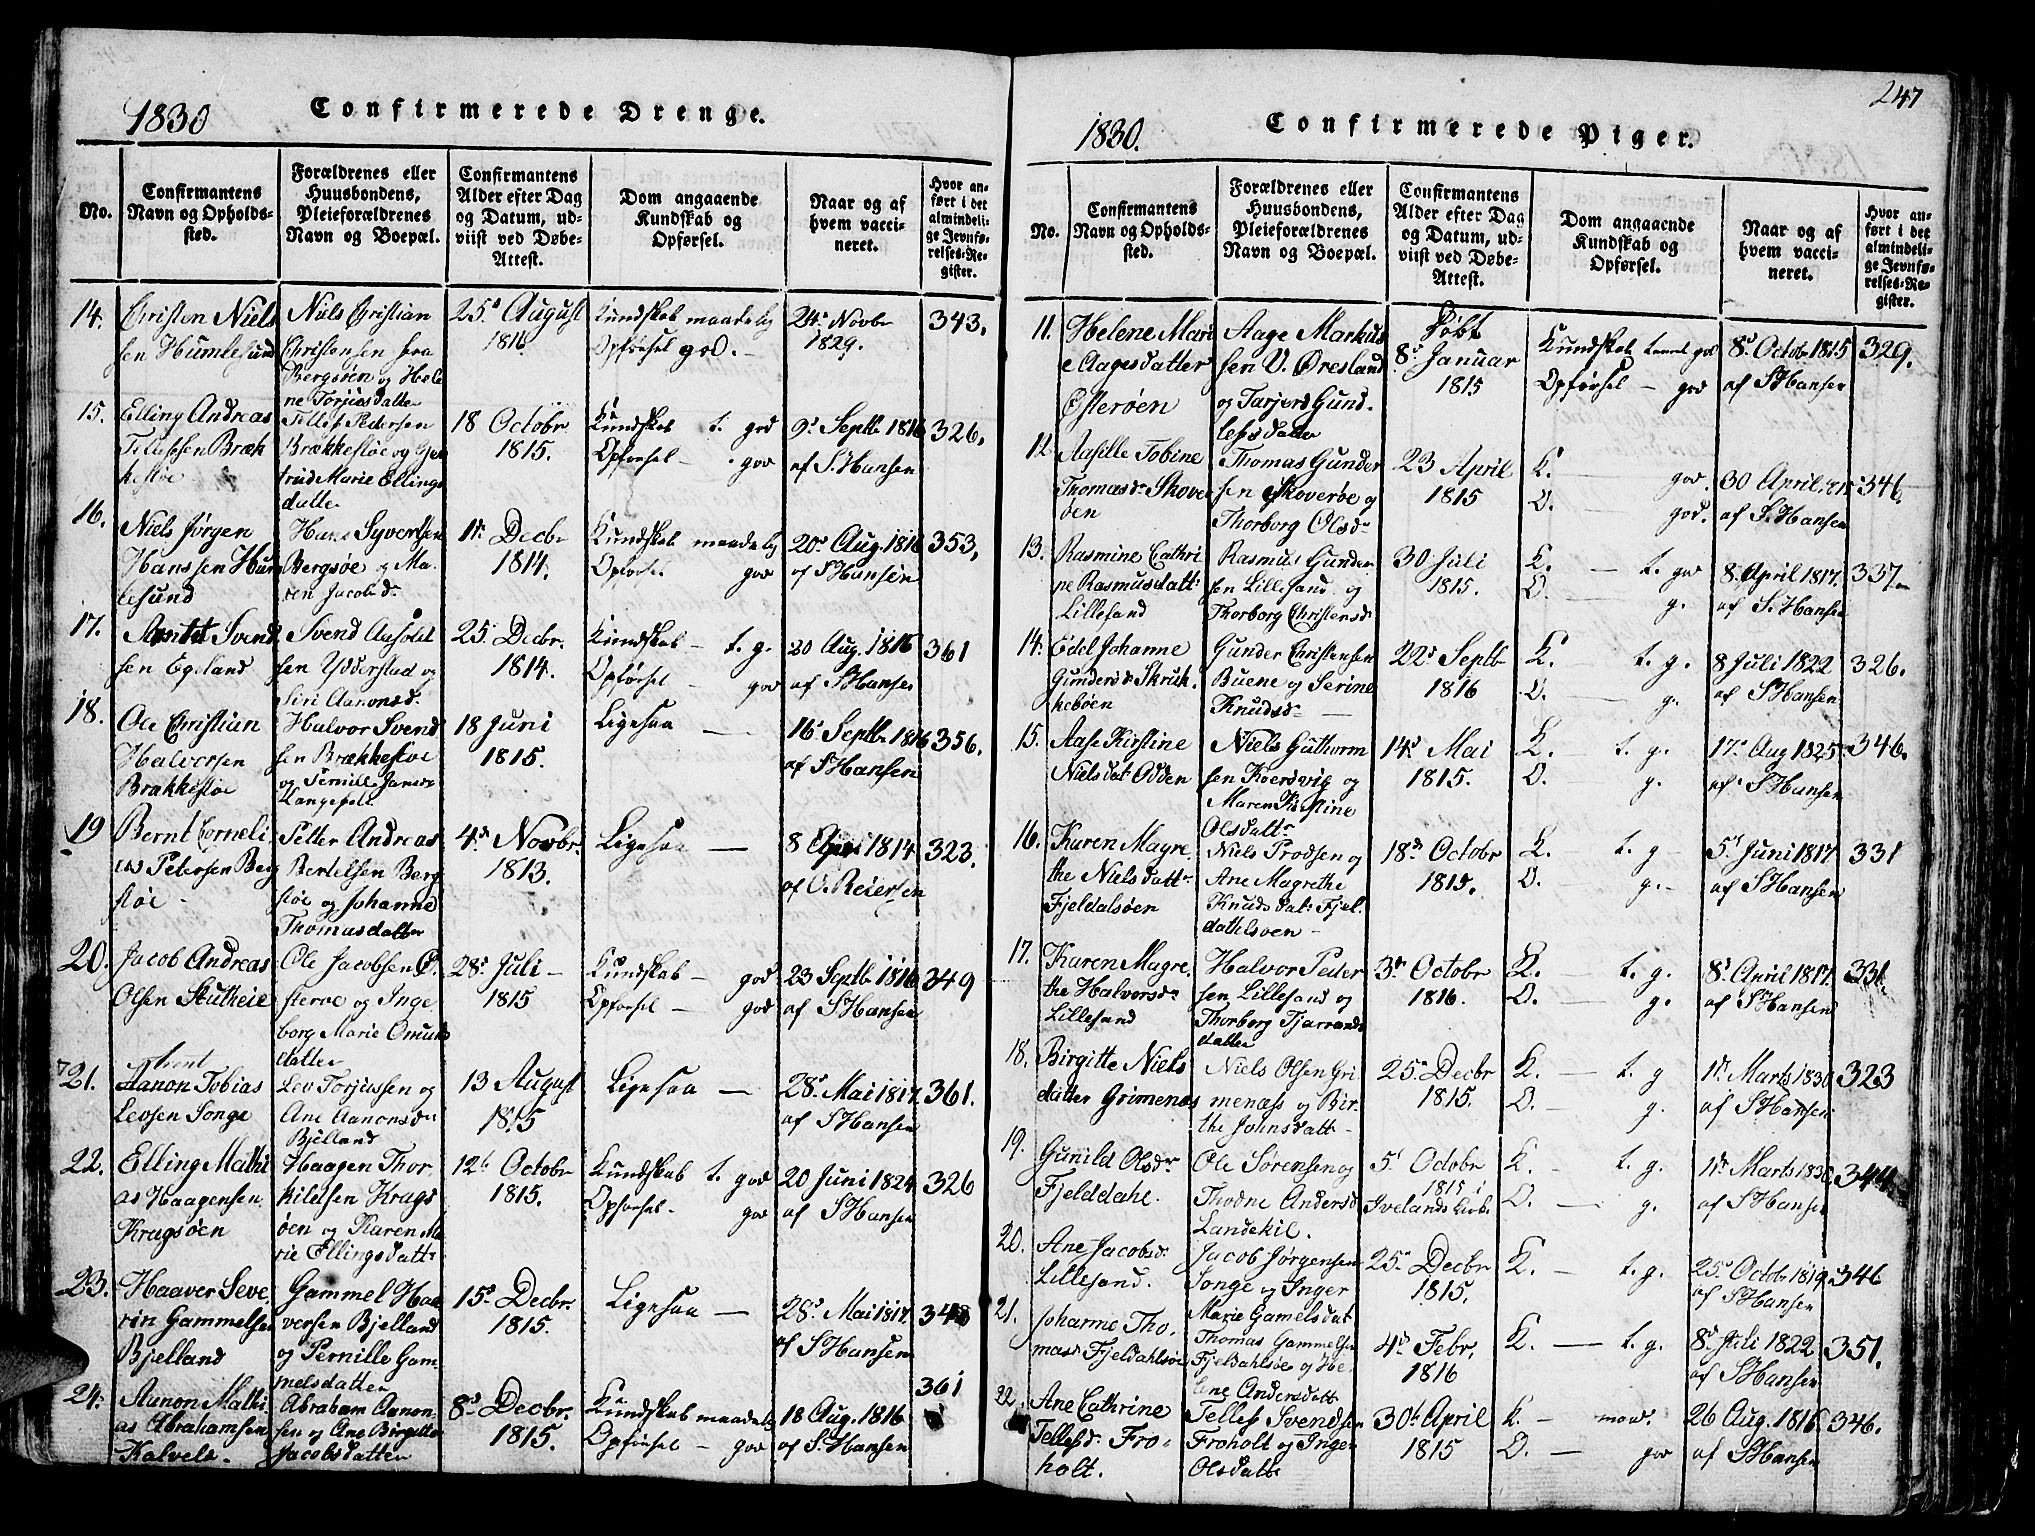 1830
Confirmerede Drenge.
No.
Confirmantens
Navn og Opholds-
sted.
Forældrenes eller
Huusbondens,
Pleieforældrenes
Navn og Boepæl.
Confirmantens
Alder efter Dag
og Datum, ud-
viist ved Døbe-
Attest.
Dom angaaende
Kundskab og
Opførsel.
Naar og af
hvem vacci-
neret.
Hvor an-
ført i det
almindeli-
ge Jevnfø-
relses-Re-
gister.
14.
Christen Niels
sen Humlesund
Niels Christian
Christensen fra
Bergsøen og Hele
ne Torjusdatter
25d August
1816
Kundskab maadelig
Opførsel god.
24d Novbr
1829.
343.
15.
Elling Andreas
Tellefsen Bræk
kestøe
Tellef Pedersen
Brækkestøe og Gjer
trud Marie Ellings
datter
18 Octobr
1815.
Kundskab t. god
Opførsel - god
9d Septbr 1816
af S. Hansen
326.
16.
Niels Jørgen
Hanssen Hum
lesund
Hans Syvertsen
Bergsøe og Ma-
ren Jacobsdr
11te Decbr
1814.
Kundskab maadelig
Opførsel god
20d Aug. 1816
af S Hansen
353.
17.
Svend
sen Egeland
Svend
sen Ydderstad og
Siri Aanonsd.
25d Decbr.
1814.
Kundskab - t. g.
Opførsel - god
20 Aug. 1816
af S Hansen
361
18.
Ole Christian
Halvorsen
Brækkestøe
Halvor Svend
sen Brækkestøe
og Pernille
Langefeldt
18 Juni
1815.
Ligesaa -
16d Septbr 1816
af S Hansen
356.
19
Bernt Corneli
us Petersen Berg
støe -
Petter Andreas
Bertelsen Berg
støe og Johanne
Thomasdatter
4de Novbr.
1813.
Ligesaa -
8 1814
af O. Reiersen
323.
20.
Jacob Andreas
Olsen Stutheie
Ole Jacobsen
og Inge
borg Marie Omunds
datter
28d Juli -
1815
Kundskab - god
Opførsel - god
23 Septbr 1816
af S Hansen
349
21.
Aanon Tobias
Levsen Songe
Lev Torjussen og
Ane Aanonsdr
Bjelland
13 August
1815
Ligesaa -
28d Mai 1817
af S Hansen
361.
22.
Elling Mathi
as Haagensen
Kragsøen
Haagen Thor-
kildsen Krags
øen og Karen Ma
rie Ellingsdattr
12te Octobr
1815.
Kundskab t. god
Opførsel - god
20 Juni 1824
af S Hansen
326
23.
Haaver Seve
rin Gammelsen
Bjelland
Gammel Haa
versen Bjelland
og Pernille Gam
melsdatter
15d Decbr.
1815.
Ligesaa -
28d Mai 1817.
af S Hansen
24.
Aanon Mathi
as Abrahamsen
Kalveld.
Abraham Aanon-
sen og Ane Birgitte
Jacobsdatter
8d Decbr.
1815.
Kundskab maadelig
Opførsel - god
18 Aug. 1816
af S. Hansen
361
247
1830.
Confirmerede Piger.
No.
Confirmantens
Navn og Opholds-
sted.
Forældrenes eller
Huusbondens,
Pleieforældrenes
Navn og Boepæl.
Confirmantens
Alder efter Dag
og Datum, ud-
viist ved Døbe-
Attest.
Dom angaaende
Kundskab og
Opførsel.
Naar og af
hvem vacci-
neret.
Hvor an-
ført i det
almindeli-
ge Jevnfø-
relses-Re-
gister.
11.
Helene Mari
e Aagesdatter
Østerøen
Aage Markus
sen V. Øresland
og Tarjerd Gund-
lefsdatter
Døbt
8d Januar
1815
Kundskab god
Opførsel - god
8d Octobr 1815
af S Hansen
329.
12
Aasille Tobine
Thomasdr Skover
øen
Thomas Gunder
sen Skoverøe og
Thorborg Olsdr
23 April
1815
K. - god.
O. - god.
30 April 1815
af S. Hansen
346.
13.
Rasmine Cathri
ne Rasmusdatt:
Lillesand
Rasmus Gunder
sen Lillesand og
Thorborg Christensd
30 Juli
1815.
K. - t. god
O. - g.
8 April 1817.
af S. Hansen
337.
14.
Edel Johanne
Gundersdr Skruk-
kebøen
Gunder Christensen
Buene og Serine
Knudsdr -
22d Septbr
1816
K. - t. g.
O. - g.
8 Juli 1822
af S Hansen
326.
15.
Aase Kirstine
Nielsdat Odden
Niels Guthorm
sen Koersvig og
Maren
Olsdattr
14d Mai
1815.
K. t. g.
O. g.
17d Aug 1825
af S Hansen
346.
16.
Karen Magre
the Nielsdattr
Fjeldalsøen
Niels Trodsen og
Ane Magrethe
Knudsdat: Fjel-
dahlsøen -
18de Octobr
1815.
K. t. g
O. g.
5d Juni 1817
af S Hansen
331
17.
Karen Magre
the Halvorsdr
Lillesand
Halvor Peder
sen Lillesand og
Thorborg Tjærrands
datter
3de Octobr
1816.
K. t. g.
O. g.
8d April 1817.
af S Hansen
331.
18.
Birgitte Niels
datter Grimenæs
Niels Olsen Gri
menæss og Bir-
the Johnsdatt -
25de Decbr
1815.
K. - t. g
O. - g.
11te Marts 1830
af S Hansen
323
19.
Gunild Olsdr
Fjelddahl.
Ole Sørensen og
Thodne Andersd
Landekil.
5d Octobr
1815 i
Ivelands Kirke
K. - t. g.
O. - g.
11te Marts 1830
af S Hansen
344
20.
Ane Jacobsdr
Lillesand.
Jacob Jørgensen
Songe og Inger
Marie Gamelsdat
25de Decbr
1815.
K. - t. g.
25d Octobr 1819
af S Hansen
346
21.
Johanne Tho-
masdr Fjeldahlsøe
Thomas Gammelsen
Fjeldahlsøe og He-
lene Andersdatt
4de Febr.
1816
K. - t. g.
8d Juli 1822
af S Hansen
351.
22.
Ane Cathrine
Tellefsdr Fro-
holt.
Tellef Svendsen
Froholt og Inger
Olsdatt
30te April
1815
K. - maad.
O. - god
26 Aug. 1816
af S Hansen
346.